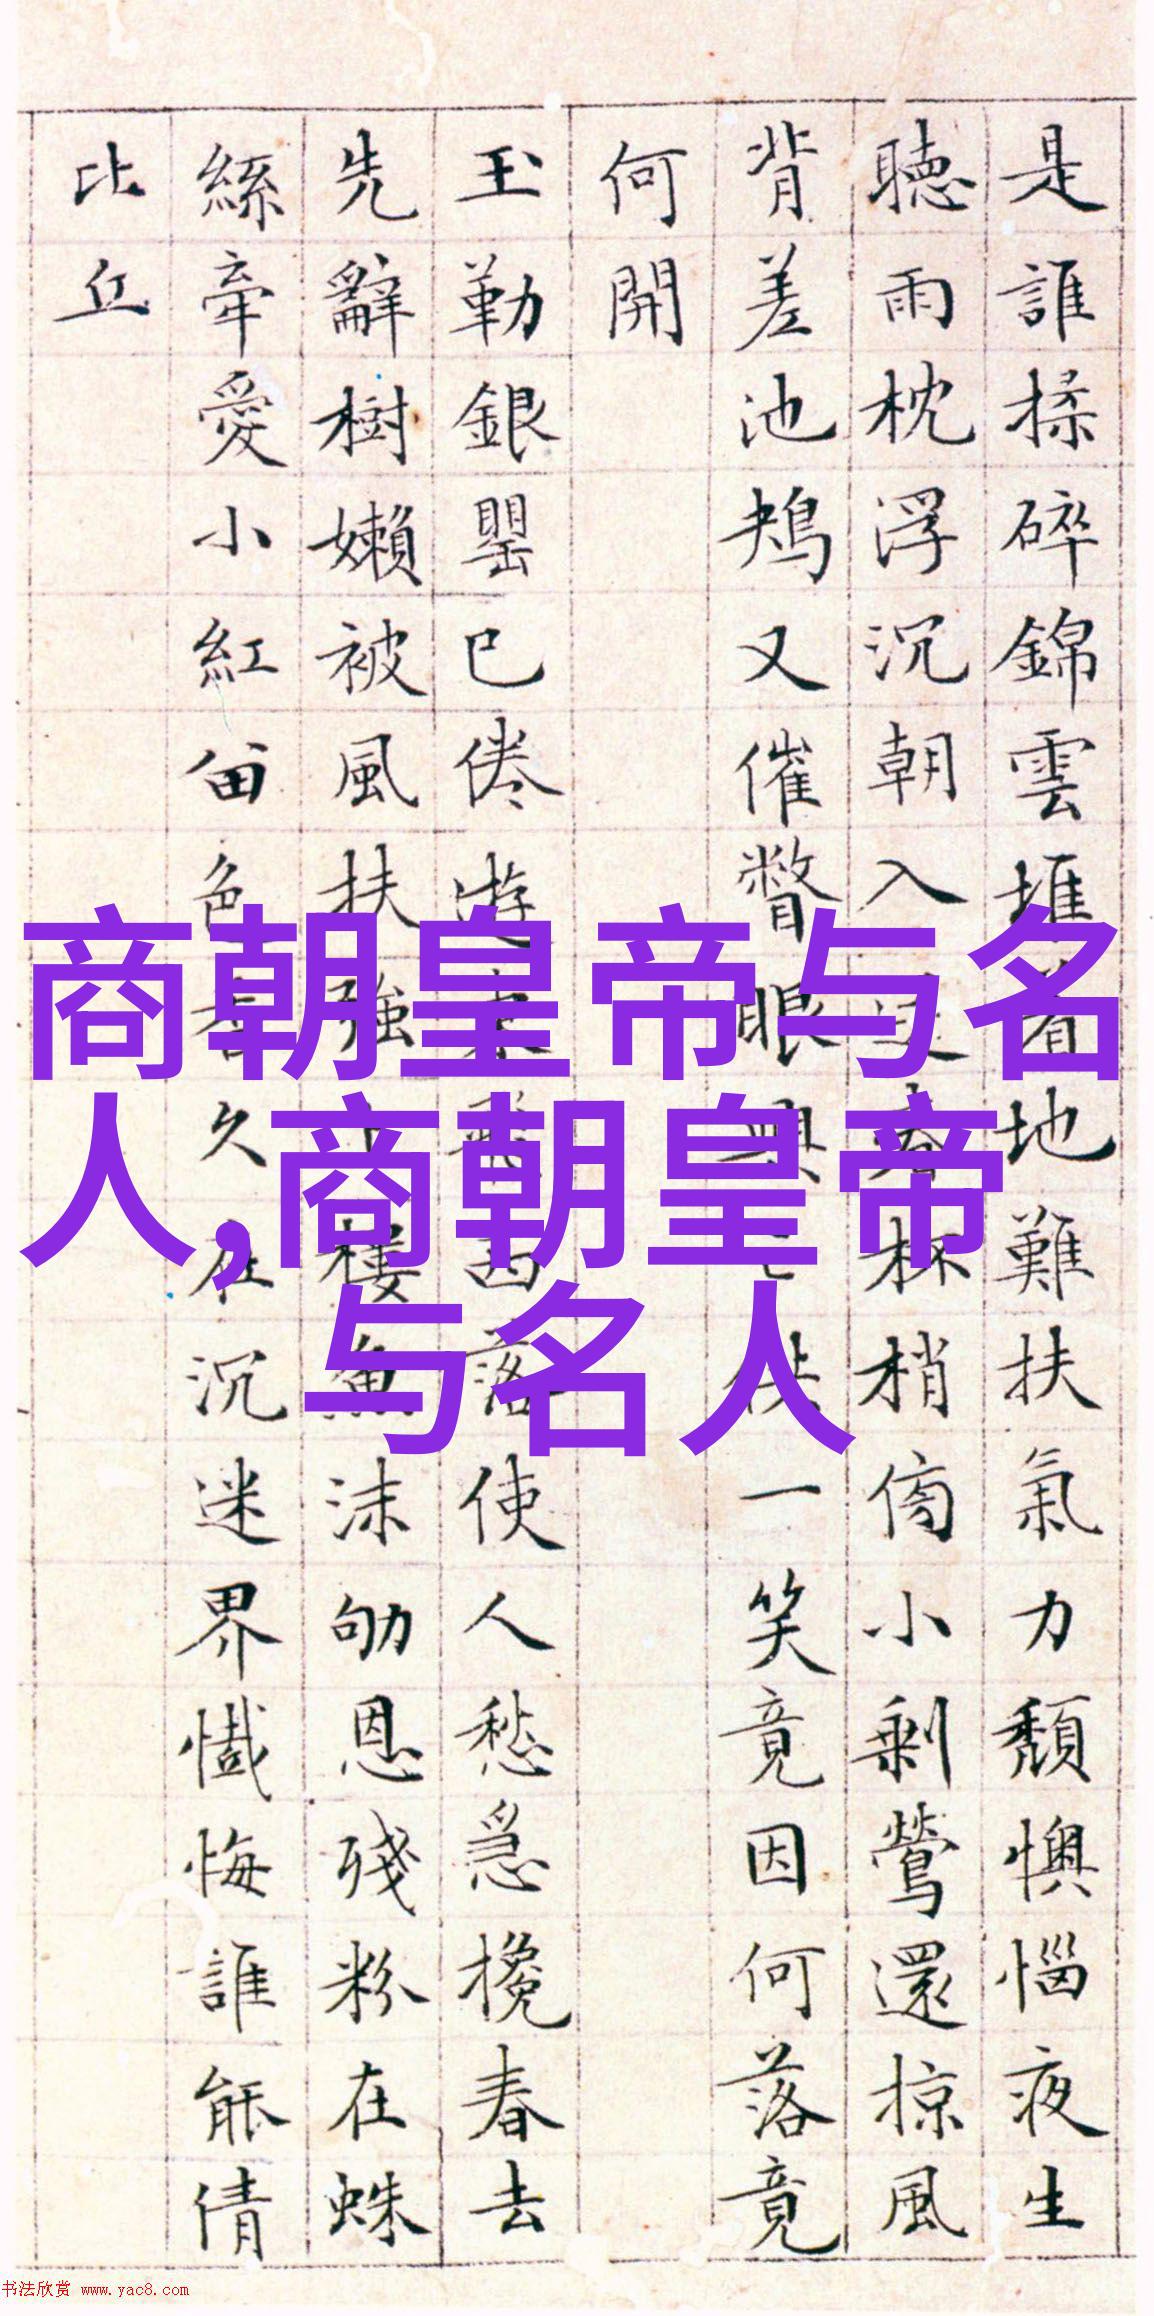 是誰揉碎錦雲堆着地難扶氣力頹懊惱夜生
聽雨枕浮沉朝入送春杯梢傍小剩鶯還掠風
背差池鴂又催瞥眼興亡供一笑竟因何落竟
何開
玉勒銀罌已倦遊東飛西落使人愁急攙春去
先辭樹嬾被風扶強上樓魚沫劬恩殘粉在蛛
絲牽愛小紅留色香久在沉迷界懺悔誰能倩
比丘
商朝皇帝与名
人,商朝皇帝
与名人
书法欣赏 www.yac8.com